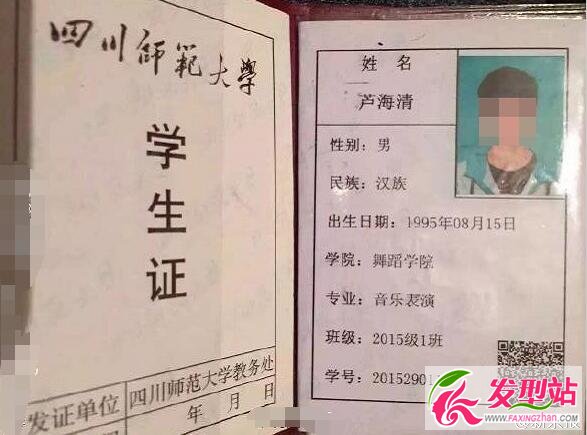 四川师範大學
学生证
发证单位
四川师范大学教务处
年 月 日
姓 名
芦海清
性别：男
民族：汉族
出生日期：1995年08月15日
学院：舞蹈学院
专业：音乐表演
班级：2015级1班
学号：20152901
发型站
www.FAXINGZHAN.com